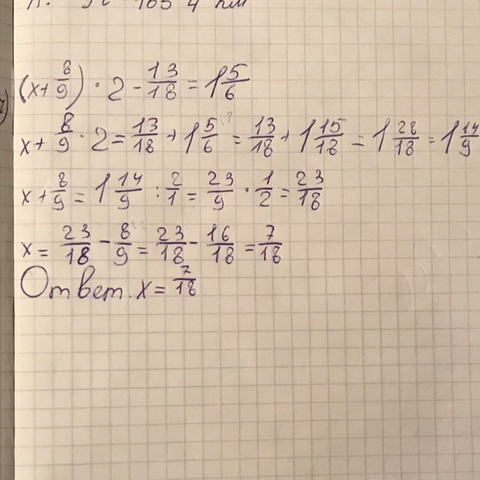 (x + 8/9) · 2 - 13/18 = 1 5/6
x + 8/9 · 2 = 13/18 + 1 5/6 = 13/18 + 1 15/18 = 1 28/18 = 1 14/9
x + 8/9 = 1 14/9 : 2/1 = 23/9 · 1/2 = 23/18
x = 23/18 - 8/9 = 23/18 - 16/18 = 7/18
Ответ. x = 7/18